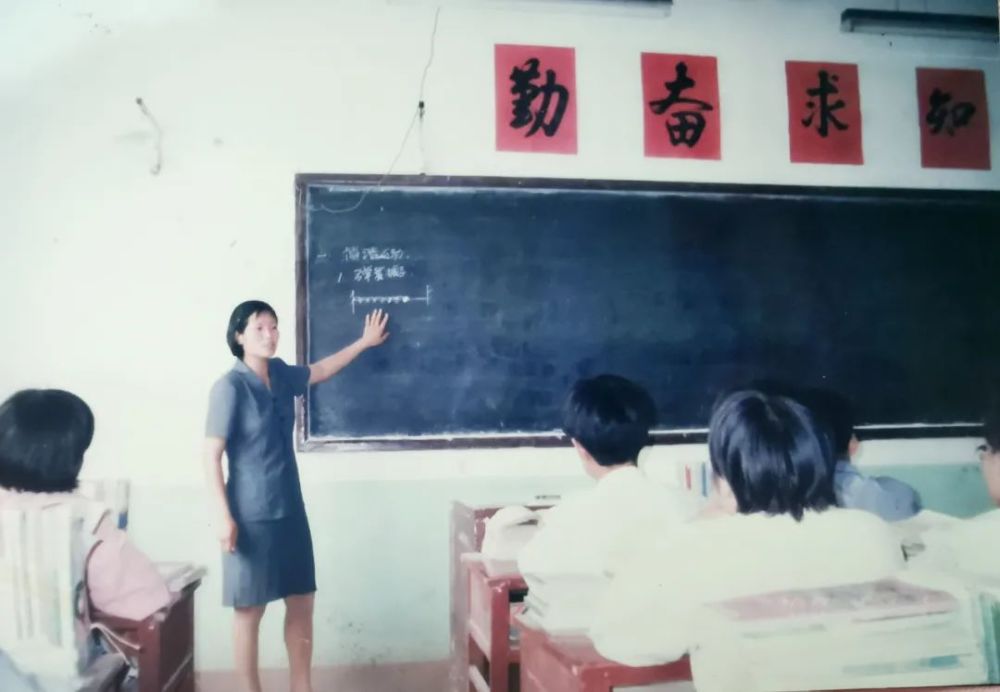 勤奋求知
一 简谐运动.
1 弹簧振子